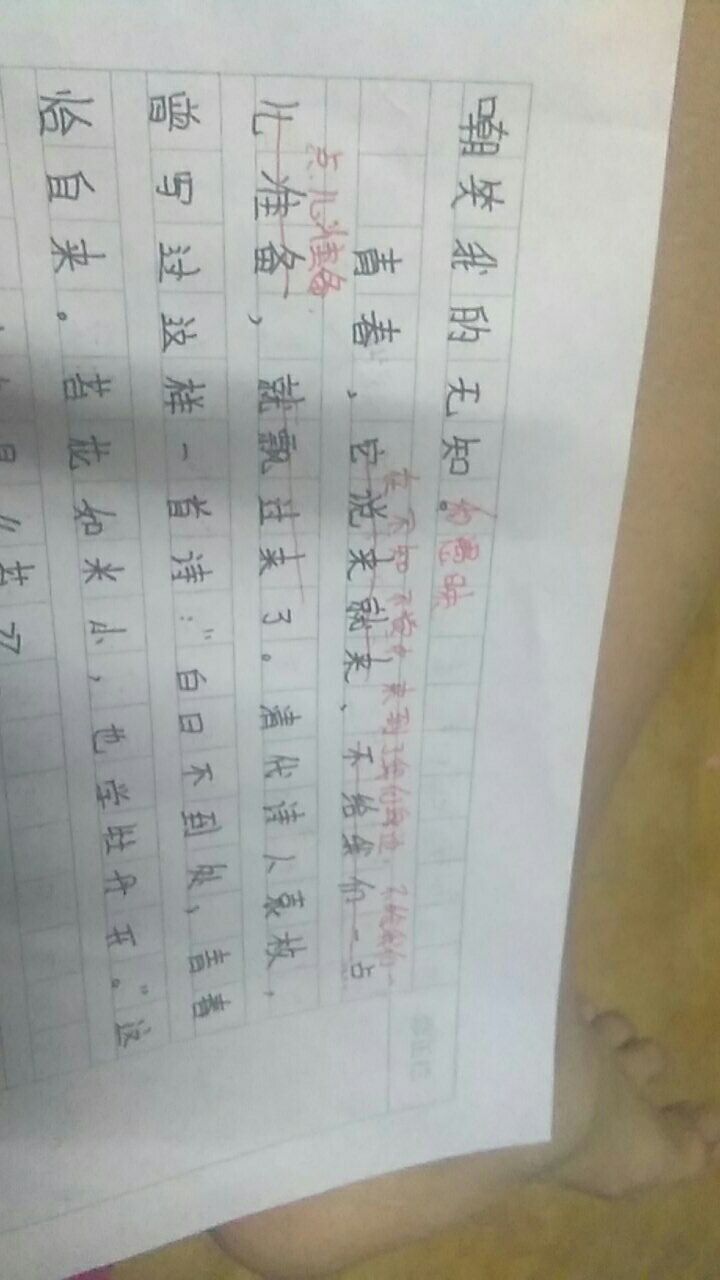 嘲笑我的无知。和愚昧
在不知不觉中来到了我们身边，不给我们一
青春，它说来就来，不给我们一点
点儿准备
儿准备，就飘过来了。清代诗人袁枚，
曾写过这样一首诗：“白日不到处，青春
恰自来。苔花如米小，也学牡丹开。”这